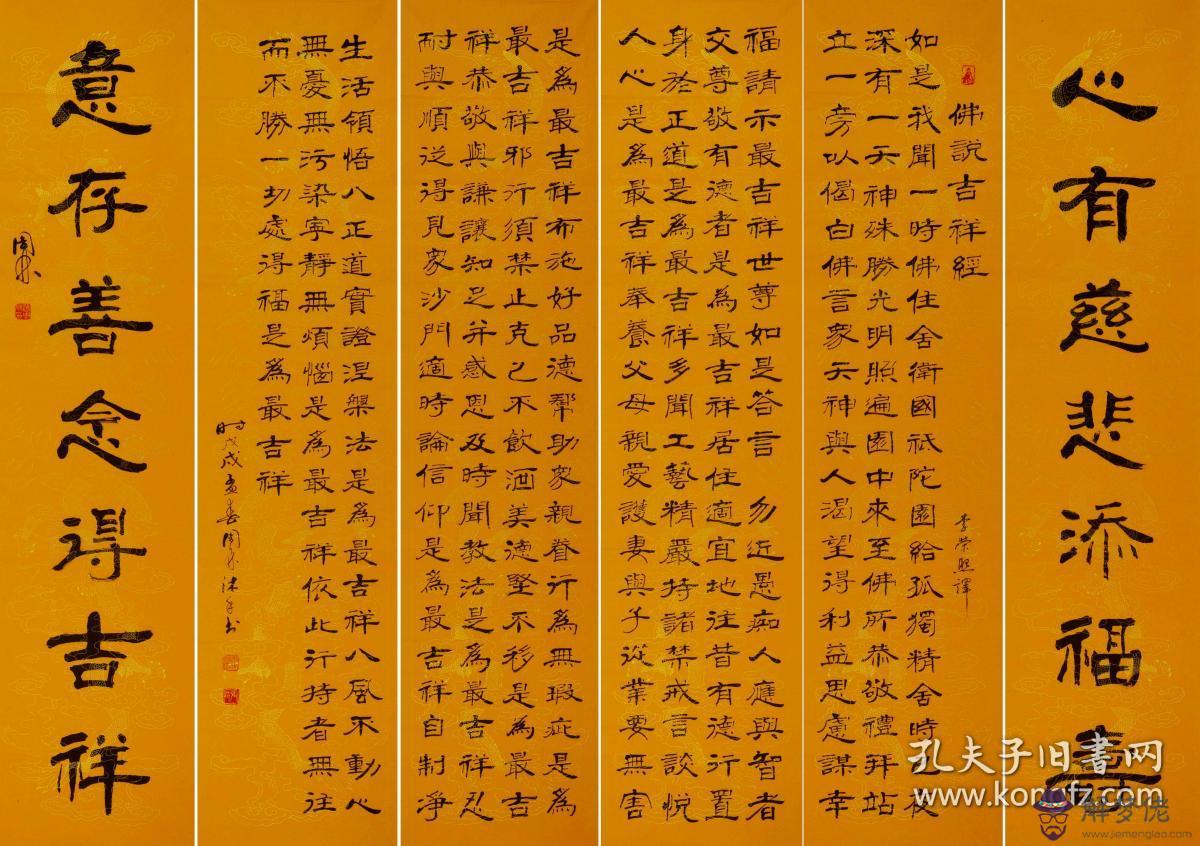 心有慈悲添福壽
佛說吉祥經
李榮熙譯
如是我聞一時佛住舍衛國祇陀園給孤獨精舍時至夜
深有一天神殊勝光明照遍園中來至佛所恭敬禮拜站
立一旁以偈白佛言眾天神與人渴望得利益思慮謀幸
福請示最吉祥世尊如是答言 勿近愚痴人應與智者
交尊敬有德者是為最吉祥居住適宜地往昔有德行置
身於正道是為最吉祥多聞工藝精嚴持諸禁戒言談悅
人心是為最吉祥奉養父母親愛護妻與子從業要無害
是為最吉祥布施好品德幫助眾親眷行為無瑕疵是為
最吉祥邪行須禁止克己不飲酒美德堅不移是為最吉
祥恭敬與謙讓知足并感恩及時聞教法是為最吉祥忍
耐與順從得見眾沙門適時論信仰是為最吉祥自制淨
生活領悟八正道實證涅槃法是為最吉祥八風不動心
無憂無污染寧靜無煩惱是為最吉祥依此行持者無往
而不勝一切處得福是為最吉祥
時戊戌孟春周沐手書
意存善念得吉祥
周
孔夫子旧书网
www.kongfz.com
解梦佬
www.jiemenglao.com